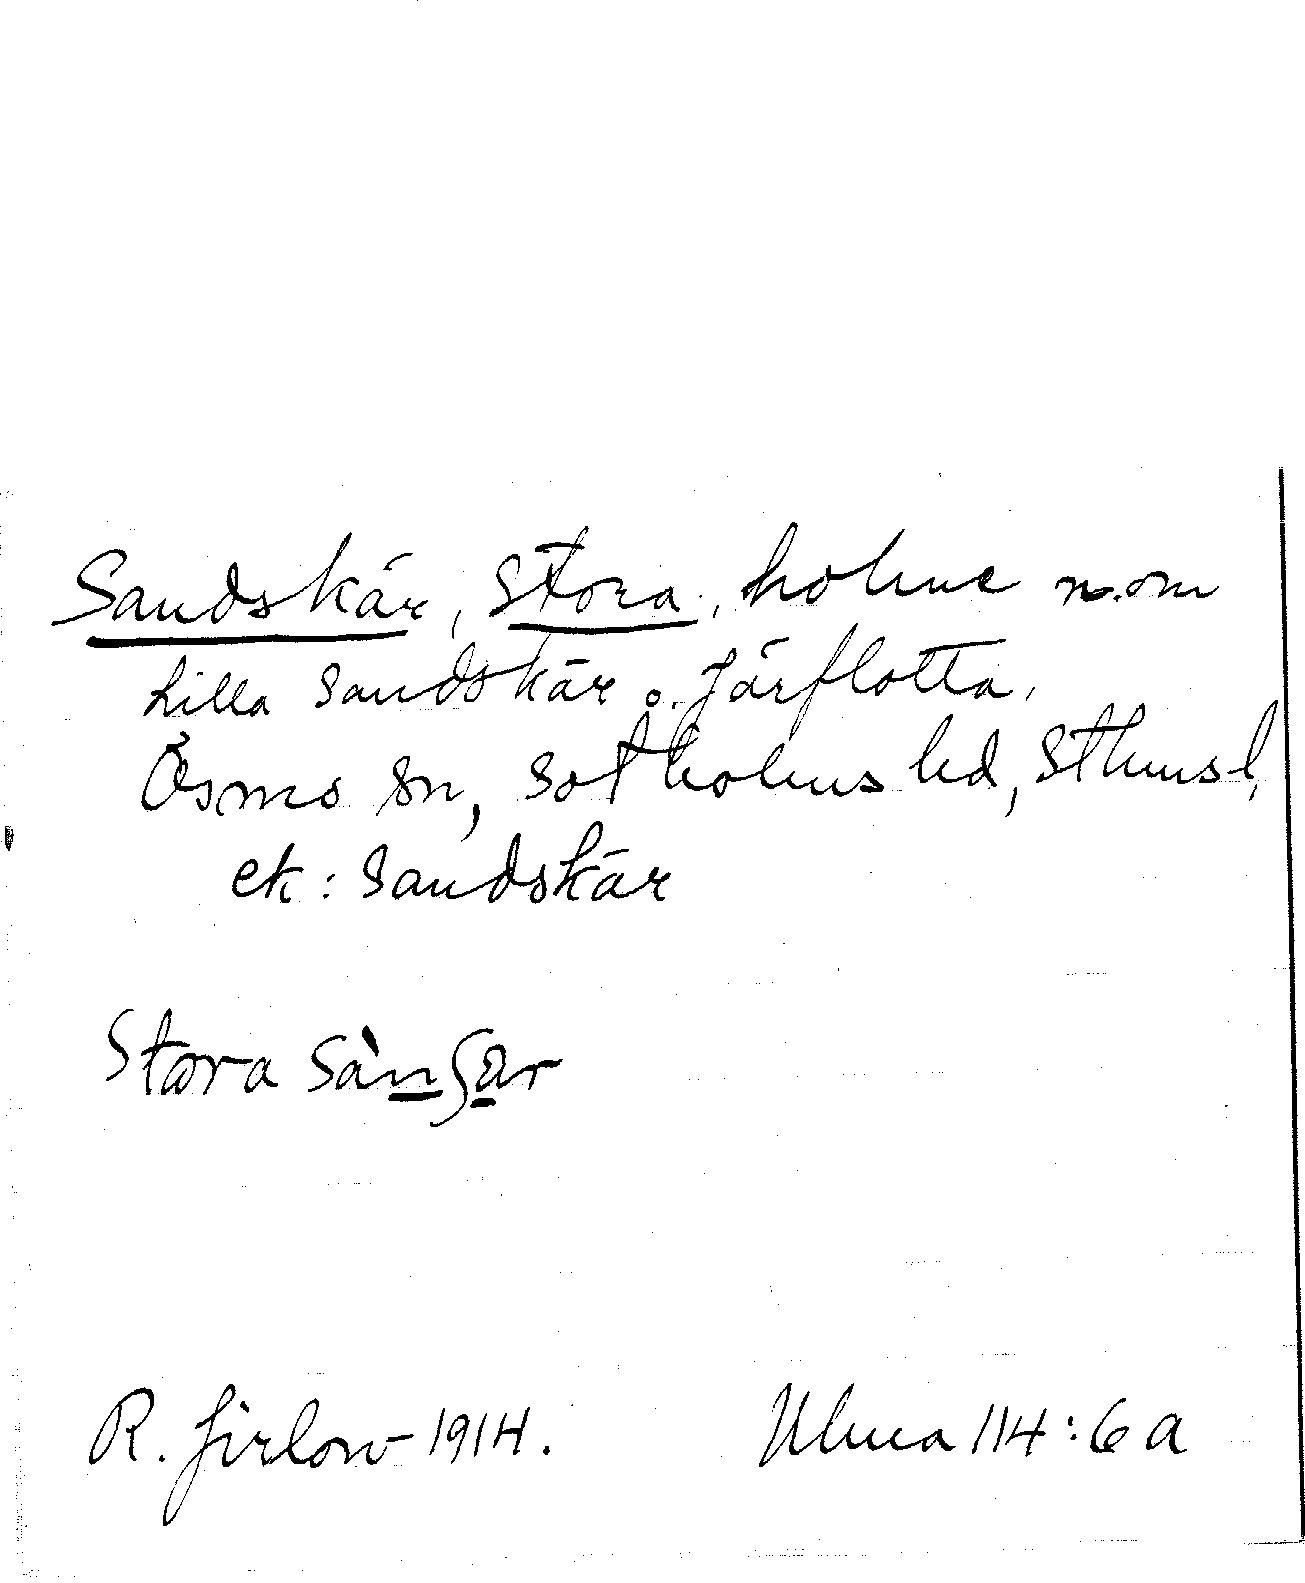 Sandskär, Stora, holme n.om
Lilla Sandskär o. Järflotta,
Ösmo sn, Sotholms hd, Sthms l,
ek: Sandskär
Stora
R. Jirlow 1914.
Ulma 114:6a